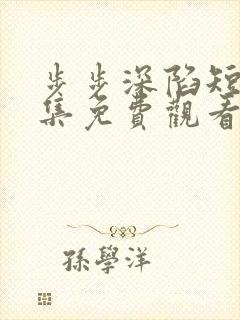 步步深陷短
集免費觀看
孫學洋